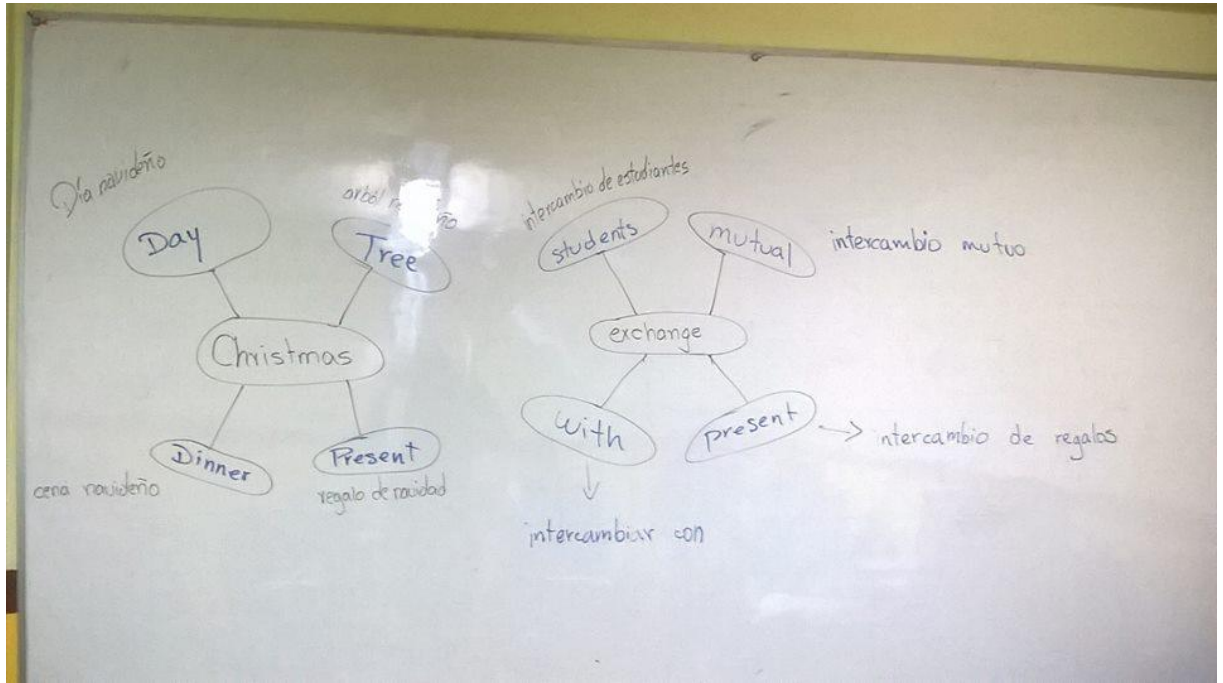 Día navideño
Day
arból
Tree
Christmas
Dinner
cena navideño
Present
regalo de navidad
intercambio de estudiantes
students
mutual
intercambio mutuo
exchange
with
intercambiar con
present
intercambio de regalos